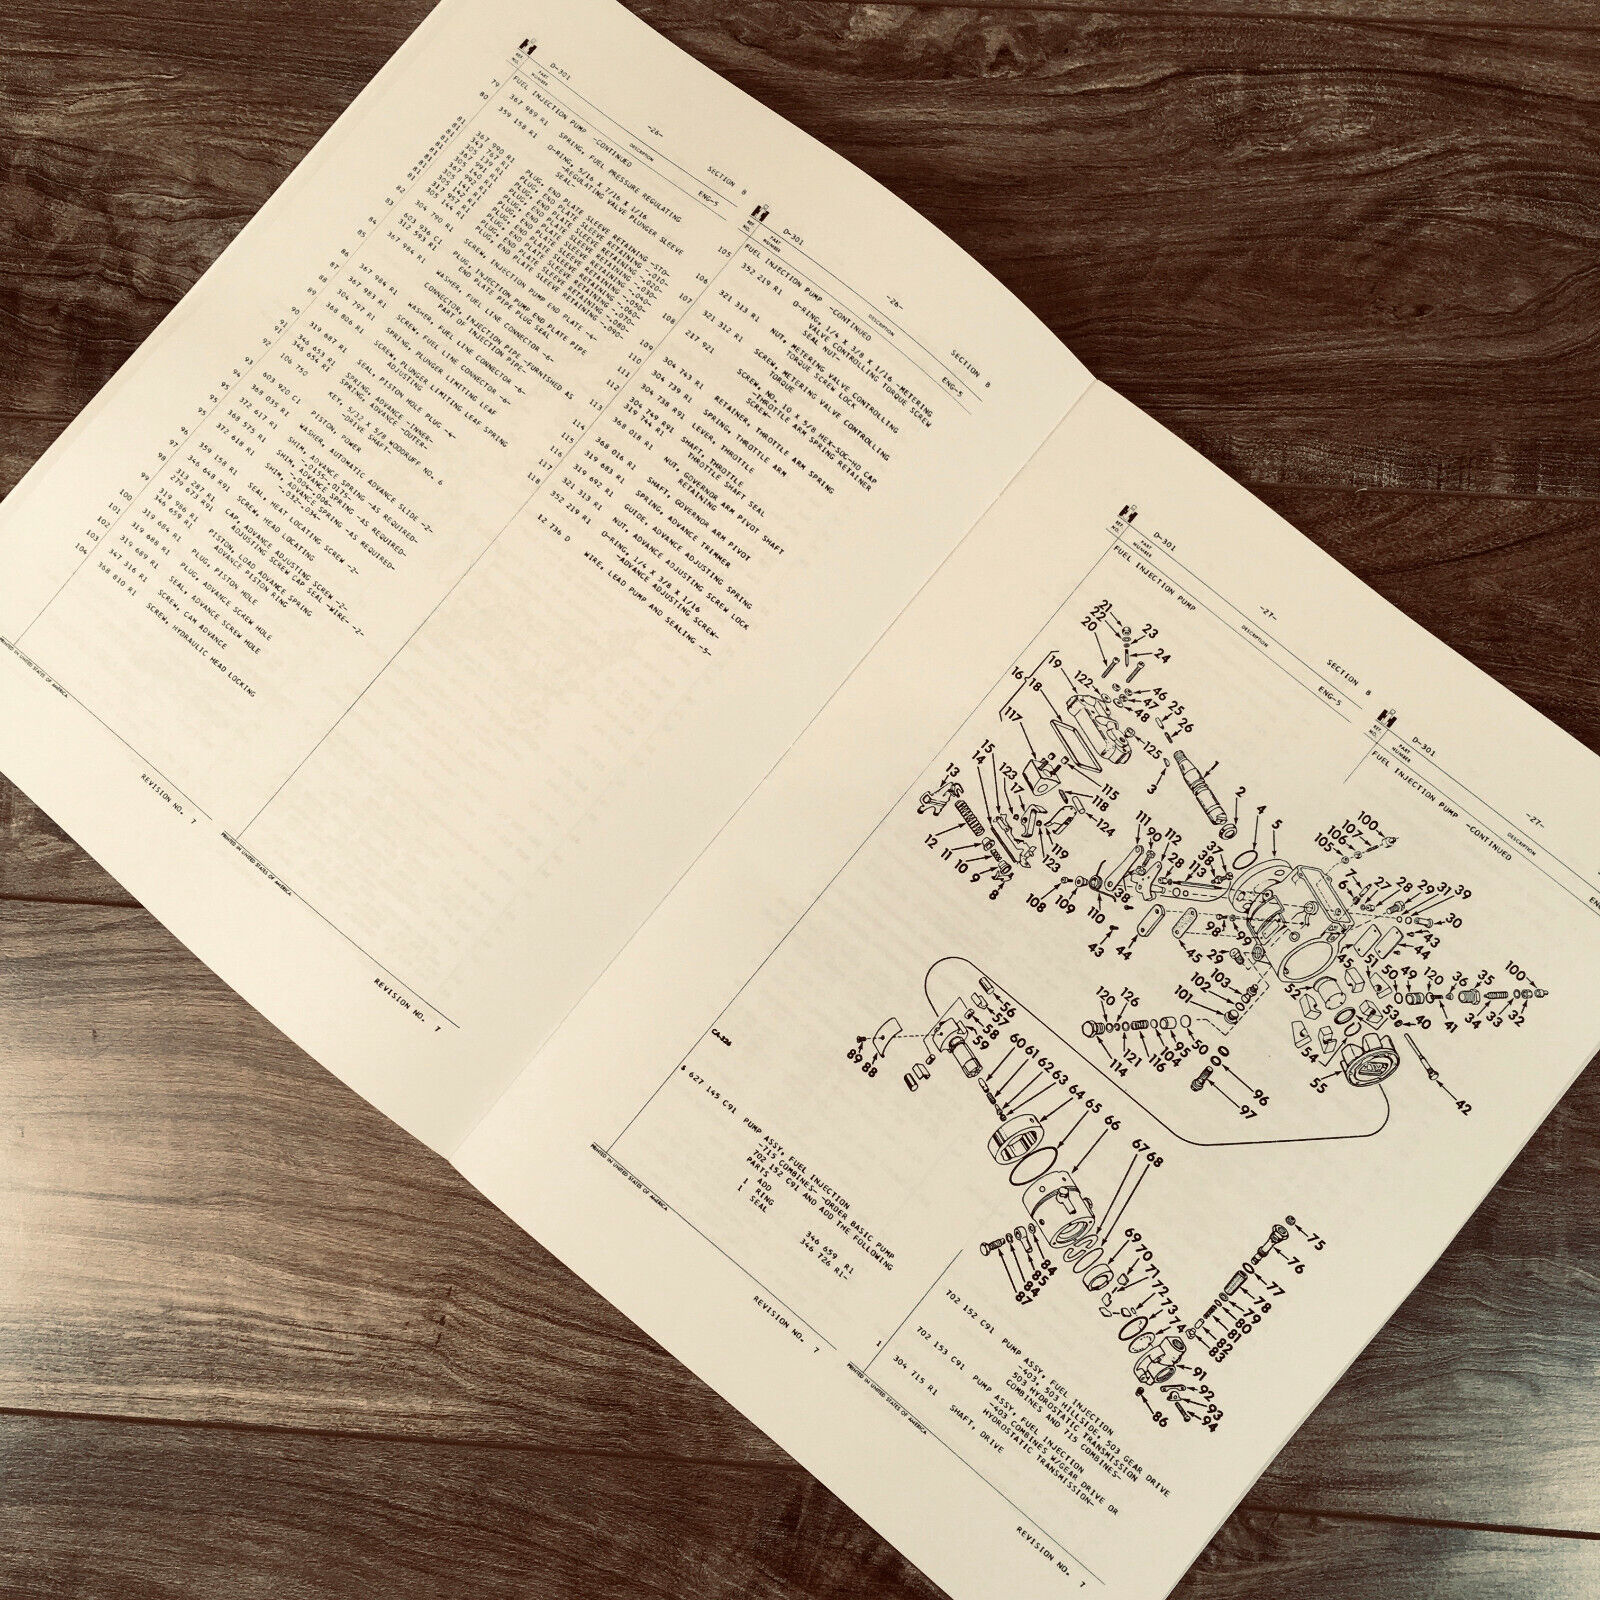 D-301
-26-
SECTION 8
REF. NO.
PART NUMBER
DESCRIPTION
ENG-5
FUEL INJECTION PUMP -CONTINUED
79 367 989 R1 SPRING, FUEL PRESSURE REGULATING
80 359 156 R1 O-RING, 5/16 X 7/16 X 1/16
-REGULATING VALVE PLUNGER SLEEVE
SEAL-
81 367 990 R1 PLUG, END PLATE SLEEVE RETAINING -STD-
81 343 767 R1 PLUG, END PLATE SLEEVE RETAINING -.010-
81 305 139 R1 PLUG, END PLATE SLEEVE RETAINING -.020-
81 367 991 R1 PLUG, END PLATE SLEEVE RETAINING -.030-
81 305 140 R1 PLUG, END PLATE SLEEVE RETAINING -.040-
81 367 992 R1 PLUG, END PLATE SLEEVE RETAINING -.050-
81 305 141 R1 PLUG, END PLATE SLEEVE RETAINING -.060-
81 305 142 R1 PLUG, END PLATE SLEEVE RETAINING -.070-
PLUG, END PLATE SLEEVE RETAINING -.080-
305 144 R1 PLUG, END PLATE SLEEVE RETAINING -.090-
82 304 790 R1 SCREW, INJECTION PUMP END PLATE -4-
83 603 936 C1 PLUG, INJECTION PUMP END PLATE PIPE
312 593 R1 END PLATE PIPE PLUG SEAL
84 367 984 R1 WASHER, FUEL LINE CONNECTOR -6-
85 CONNECTOR, INJECTION PIPE -FURNISHED AS
PART OF INJECTION PIPE-
86 367 984 R1 WASHER, FUEL LINE CONNECTOR -6-
87 367 983 R1 SCREW, FUEL LINE CONNECTOR -6-
88 304 797 R1 SPRING, PLUNGER LIMITING LEAF
89 368 806 R1 SCREW, PLUNGER LIMITING LEAF SPRING
ADJUSTING
90 319 687 R1 SEAL, PISTON HOLE PLUG -4-
91 346 653 R1 SPRING, ADVANCE -INNER-
91 346 654 R1 SPRING, ADVANCE -OUTER-
92 106 750 KEY, 5/32 X 5/8 WOODRUFF NO. 6
-DRIVE SHAFT-
93 603 920 C1 PISTON, POWER
94 368 035 R1 WASHER, AUTOMATIC ADVANCE SLIDE -2-
95 372 617 R1 SHIM, ADVANCE SPRING -AS REQUIRED-
-.0155-.0175-
95 368 575 R1 SHIM, ADVANCE SPRING -AS REQUIRED-
-.004-.006-
95 372 618 R1 SHIM, ADVANCE SPRING -AS REQUIRED-
-.032-.034-
96 359 158 R1 SEAL, HEAT LOCATING SCREW -2-
97 346 648 R91 SCREW, HEAD LOCATING
98 313 287 R1 CAP, ADVANCE ADJUSTING SCREW -2-
279 673 R91 ADJUSTING SCREW CAP SEAL -WIRE- -2-
99 319 986 R1 PISTON, LOAD ADVANCE SPRING
346 659 R1 ADVANCE PISTON RING
100 319 684 R1 PLUG, PISTON HOLE
101 319 688 R1 PLUG, ADVANCE SCREW HOLE
102 319 689 R1 SEAL, ADVANCE SCREW HOLE
103 347 316 R1 SCREW, CAM ADVANCE
104 368 810 R1 SCREW, HYDRAULIC HEAD LOCKING
PRINTED IN UNITED STATES OF AMERICA
REVISION NO. 7
D-301
-26-
SECTION 8
REF. NO.
PART NUMBER
DESCRIPTION
ENG-5
FUEL INJECTION PUMP -CONTINUED
105 352 219 R1 O-RING, 1/4 X 3/8 X 1/16 -METERING
VALVE CONTROLLING TORQUE SCREW
SEAL NUT-
106 321 313 R1 NUT, METERING VALVE CONTROLLING
TORQUE SCREW LOCK
107 321 312 R1 SCREW, METERING VALVE CONTROLLING
TORQUE
108 217 921 SCREW, NO. 10 X 5/8 HEX-SOC-HD CAP
-THROTTLE ARM SPRING RETAINER
SCREW-
109 304 743 R1 RETAINER, THROTTLE ARM SPRING
110 304 739 R1 SPRING, THROTTLE ARM
111 304 738 R91 LEVER, THROTTLE
112 304 749 R91 SHAFT, THROTTLE
319 744 R1 THROTTLE SHAFT SEAL
113 368 018 R1 NUT, GOVERNOR ARM PIVOT SHAFT
RETAINING
114 368 016 R1 SHAFT, GOVERNOR ARM PIVOT
115 319 683 R1 SPRING, ADVANCE TRIMMER
116 319 692 R1 GUIDE, ADVANCE ADJUSTING SPRING
117 321 313 R1 NUT, ADVANCE ADJUSTING SCREW LOCK
118 352 219 R1 O-RING, 1/4 X 3/8 X 1/16
-ADVANCE ADJUSTING SCREW-
12 736 D WIRE, LEAD PUMP AND SEALING -5-
PRINTED IN UNITED STATES OF AMERICA
REVISION NO. 7
D-301
-27-
SECTION 8
REF. NO.
PART NUMBER
DESCRIPTION
ENG-5
FUEL INJECTION PUMP
D-301
-27-
REF. NO.
PART NUMBER
DESCRIPTION
FUEL INJECTION PUMP -CONTINUED
21
22
20
23
24
19
16
18
122
46
47
48
25
26
117
125
1
2
3
4
5
15
14
123
17
13
115
118
124
119
123
12
11
10
9
8
111
90
112
28
113
37
38
108
109
110
38
43
44
45
98
99
29
100
107
106
105
7
6
27
28
29
31
39
30
43
44
45
51
50
49
120
36
35
100
34
33
32
41
40
53
52
54
55
42
103
102
101
120
126
121
114
116
104
95
50
96
97
56
57
58
59
60
61
62
63
64
65
66
67
68
89
88
69
70
71
72
73
74
84
85
84
87
75
76
77
78
79
80
81
82
83
91
92
93
94
86
CA-326
& 627 145 C91 PUMP ASSY, FUEL INJECTION
-715 COMBINES- -ORDER BASIC PUMP
702 152 C91 AND ADD THE FOLLOWING
PARTS
ADD
1 RING 346 659 R1
1 SEAL 346 726 R1-
PRINTED IN UNITED STATES OF AMERICA
REVISION NO. 7
702 152 C91 PUMP ASSY, FUEL INJECTION
-403, 503 HILLSIDE, 503 GEAR DRIVE
503 HYDROSTATIC TRANSMISSION
COMBINES AND 715 COMBINES-
702 153 C91 PUMP ASSY, FUEL INJECTION
-403 COMBINES W/GEAR DRIVE OR
HYDROSTATIC TRANSMISSION-
1 304 715 R1 SHAFT, DRIVE
PRINTED IN UNITED STATES OF AMERICA
REVISION NO. 7